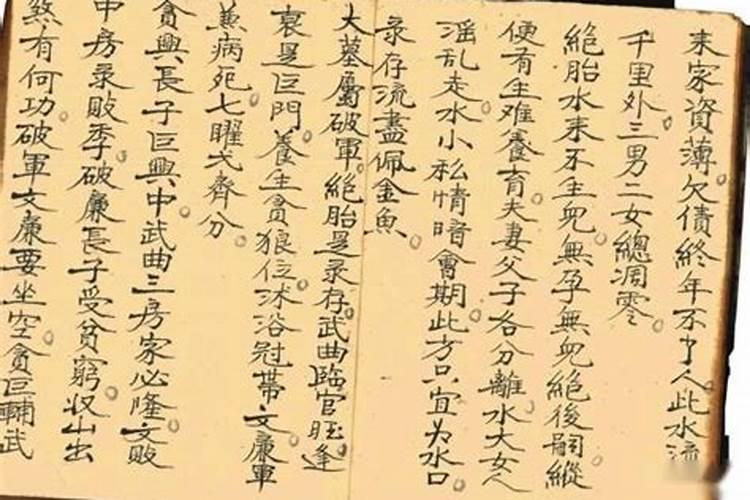 来家資薄欠債終年不了人此水流
千里外三男二女總凋零
絕胎水来不生兒無孕無兒絕後嗣縱
便有生难養育夫妻父子各分離水大女人
滛乱走水小私情暗會期此方只宜为水口
录存流盡佩金魚
大墓屬破軍絕胎是录存武曲臨官旺逢
衰是巨門養生貪狼位沐浴冠帶文廉軍
兼病死七曜弍齊分
貪興長子巨興中武曲三房家必隆文敗
中房录敗季破廉長子受貧窮収山出
煞有何功破軍文廉要坐空貪巨輔武